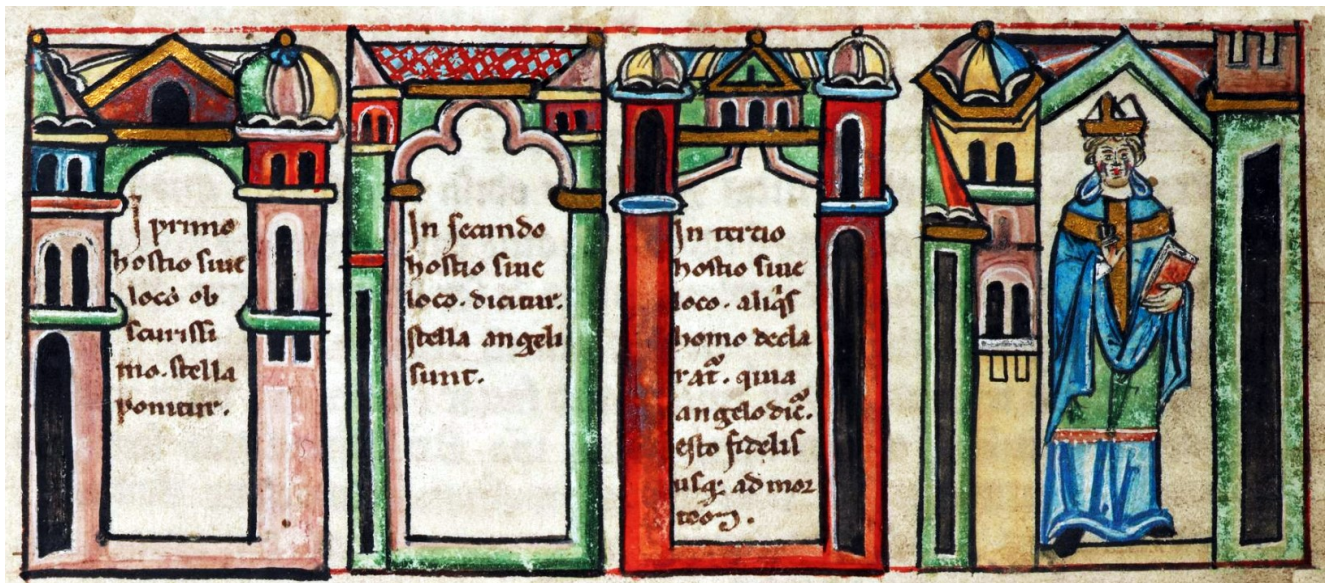 I primo
hostio siue
loco ob
scurissi
mo. stella
ponitur.
In secundo
hostio siue
loco. dicitur.
stella angeli
sunt.
In tercio
hostio siue
loco. aliq̇s
homo decla
rat̄. quia
angelo dic̄.
esto fidelis
usq; ad mor
tem.